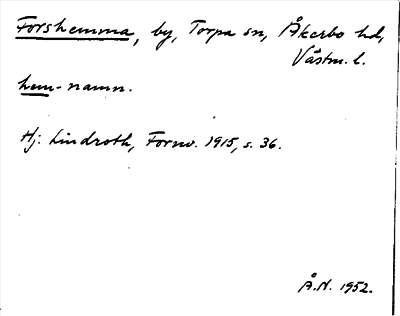 Forshemma, by, Torpa sn, Åkerbo hd,
Västm. l.
hem-namn.
Hj. Lindroth, Fornv. 1915, s. 36.
Å.N. 1952.